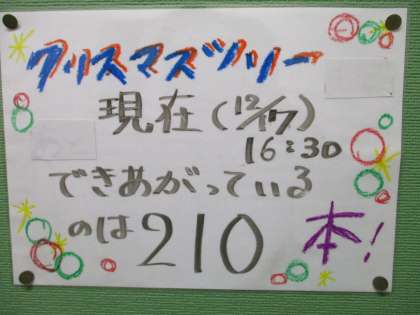 クリスマスツリー
現在(12/17)
16:30
できあがっている
のは210本!